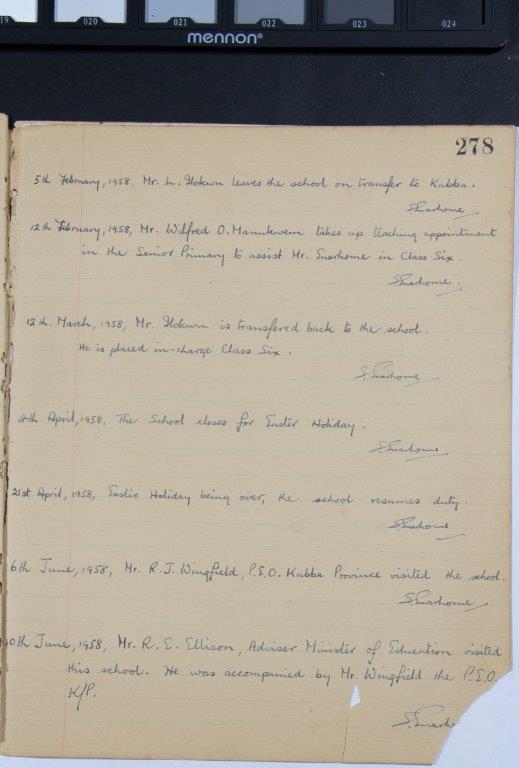 020 021 022 023 024
mennon®
278
5th February, 1958, Mr. L. Ilokwu leaves the school on transfer to Kabba.
S. Enarhome
12th February, 1958, Mr. Wilfred O. takes up teaching appointment
in the Senior Primary to assist Mr. Enarhome in Class Six.
S. Enarhome.
12th. March, 1958, Mr. Ilokwu is transfered back to the school.
He is placed in-charge Class Six.
S. Enarhome
4th April, 1958, The School closes for Easter Holiday.
S. Enarhome
21st April, 1958, Easter Holiday being over, the school resumes duty.
S. Enarhome
6th June, 1958, Mr. R. J. Wingfield, P.E.O. Kabba Province visited the school.
S. Enarhome
0th June, 1958, Mr. R. E. Ellison, Adviser Minister of Education visited
this school. He was accompanied by Mr. Wingfield the P.E.O.
K/P.
S. Enarho